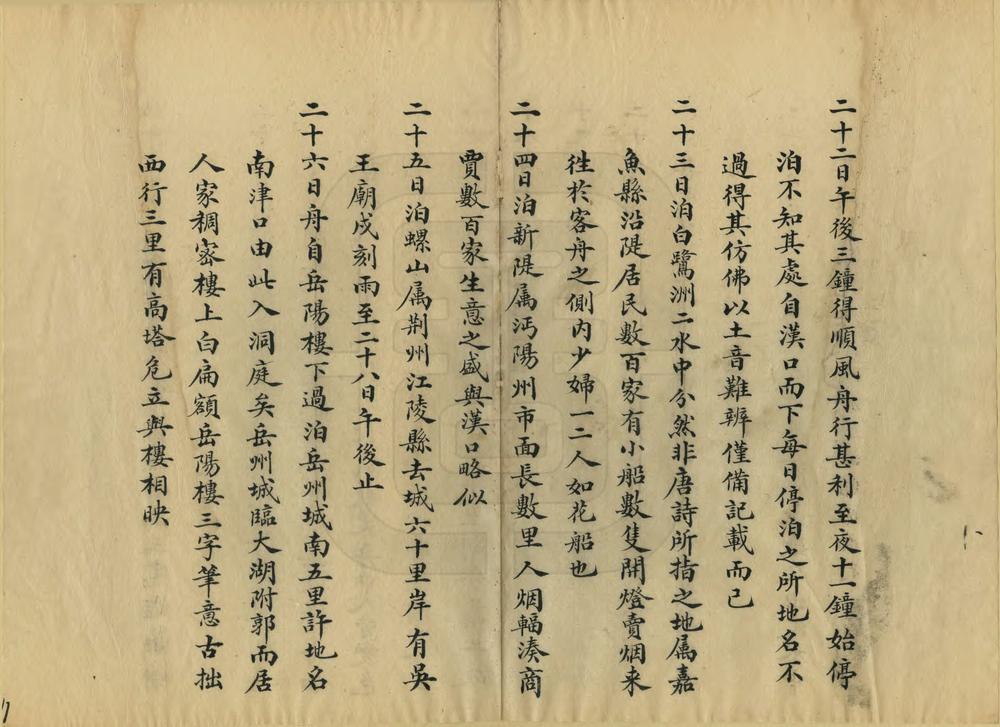 二十二日午後三鐘得順風舟行甚利至夜十一鐘始停
泊不知其處自漢口而下每日停泊之所地名不
過得其仿佛以土音難辨僅備記載而已
二十三日泊白鷺洲二水中分然非唐詩所指之地属嘉
魚縣沿隄居民數百家有小船數隻開燈賣烟来
徃於客舟之側內少婦一二人如花船也
二十四日泊新隄属沔陽州市面長數里人烟輻湊商
賈數百家生意之盛與漢口略似
二十五日泊螺山属荆州江陵縣去城六十里岸有吳
王廟戌刻雨至二十八日午後止
二十六日舟自岳陽樓下過泊岳州城南五里許地名
南津口由此入洞庭矣岳州城臨大湖附郭而居
人家稠密樓上白扁額岳陽樓三字筆意古拙
西行三里有高塔危立與樓相映